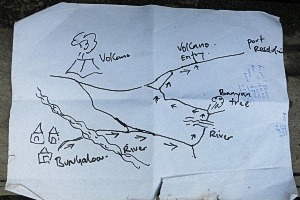 Volcano
Volcano
Entry
port
Resolution
Banyan
tree
River
River
Bungalow